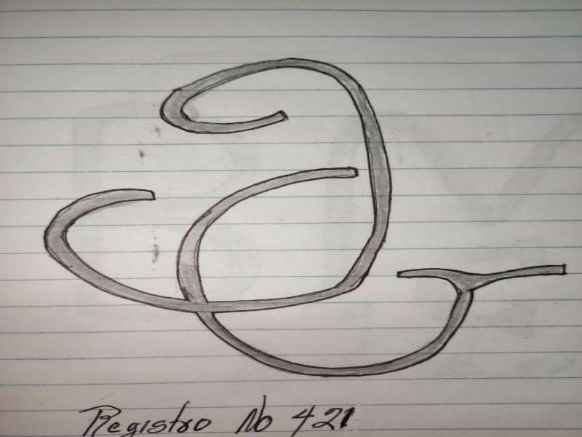 Registro No 421